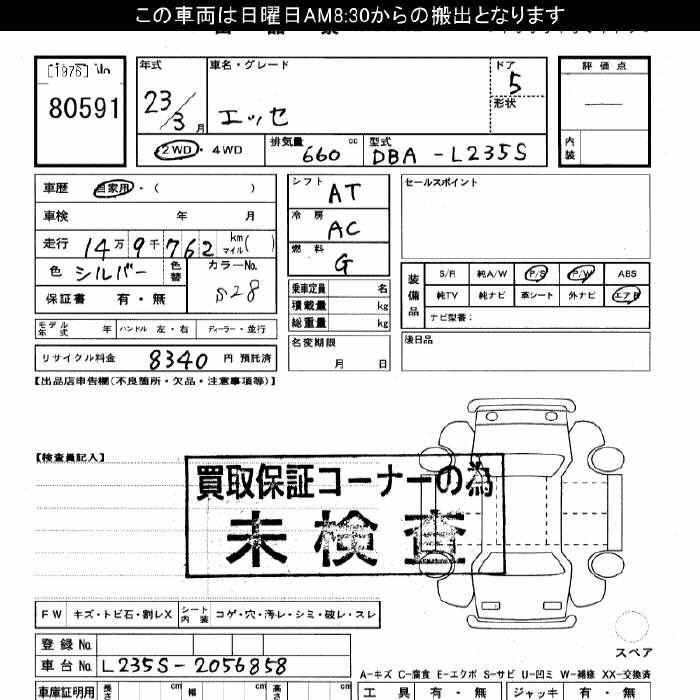 この車両は日曜日AM8:30からの搬出となります
[1976] No
80591
年式
23/3 月
車名・グレード
エッセ
ドア
5
形状
評価点
内装
2WD・4WD
排気量 660 cc
型式 DBA-L235S
車歴 自家用・( )
車検 年 月
走行 14万9千762 km マイル( )
色 シルバー 色替
カラーNo. S28
保証書 有・無
シフト AT
冷房 AC
燃料 G
乗車定員 名
積載量 kg
総重量 kg
セールスポイント
装備品
S/R 純A/W P/S P/W ABS
純TV 純ナビ 革シート 外ナビ エアB
ナビ型番:
モデル年式 年 ハンドル 左・右 ディーラー・並行
名変期限
月 日
後日品
リサイクル料金 8340 円 預託済
【出品店申告欄(不良箇所・欠品・注意事項等)】
【検査員記入】
買取保証コーナーの為
未検査
FW キズ・トビ石・割レX シート内装 コゲ・穴・汚レ・シミ・破レ・スレ
スペア
登録No.
車台No. L235S-2056858
A-キズ C-腐食 E-エクボ S-サビ U-凹ミ W-補修 XX-交換済
車庫証明用 長さ cm 幅 cm 高さ cm
工具 有・無 ジャッキ 有・無